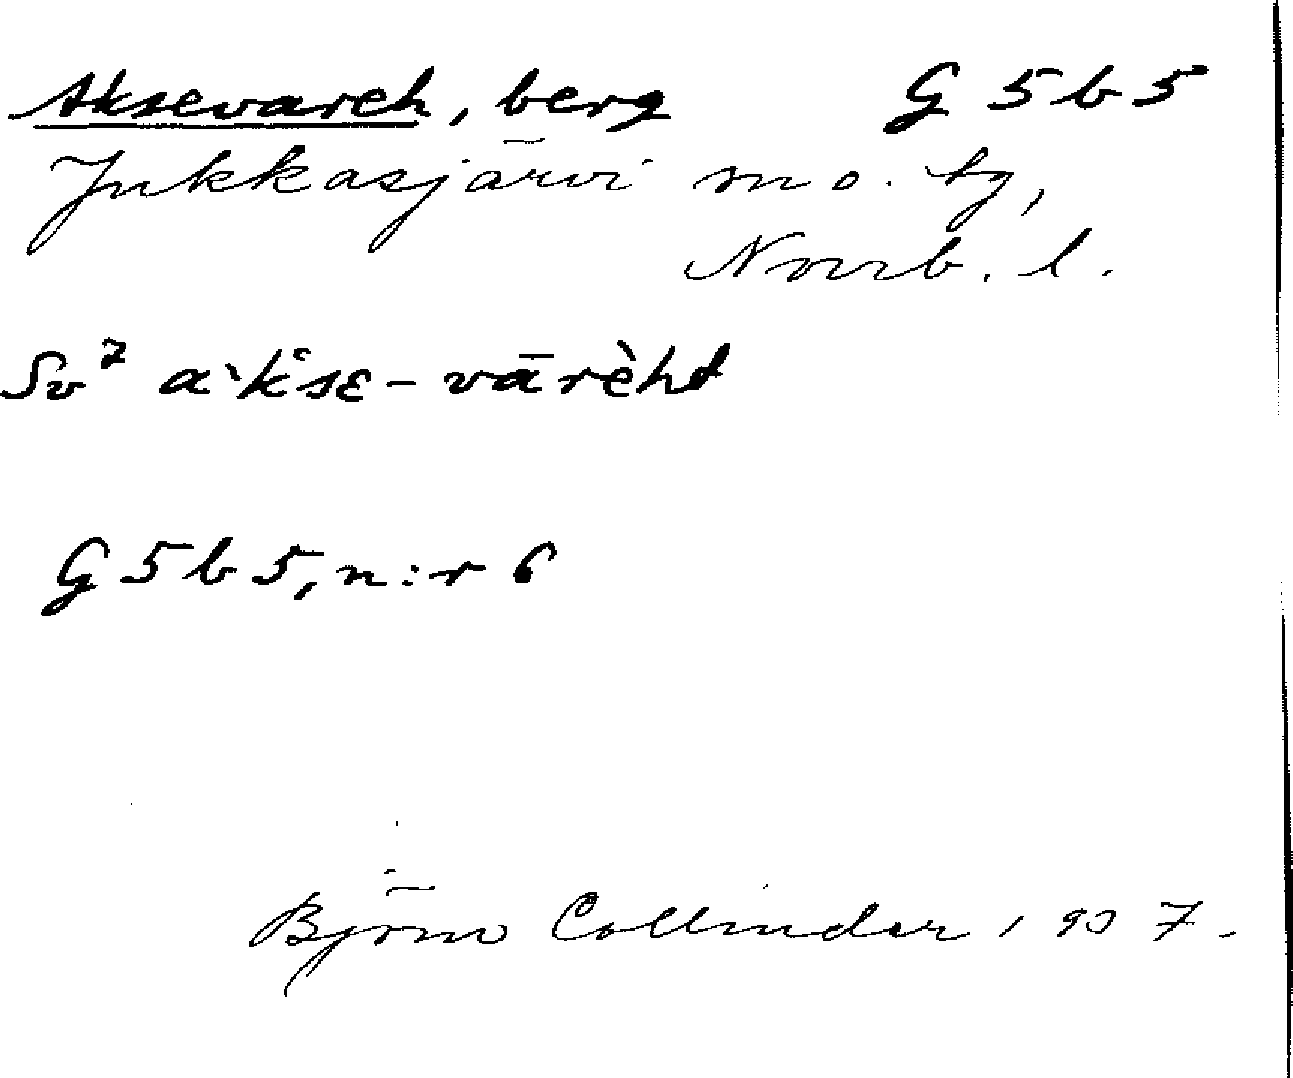 Aksevareh, berg G 5 b 5
Jukkasjärvi sn o. tg,
Norrb. l.
Sv² a`k̊sɛ-vārèht
G 5 b 5, n:r 6
Björn Collinder 1907.